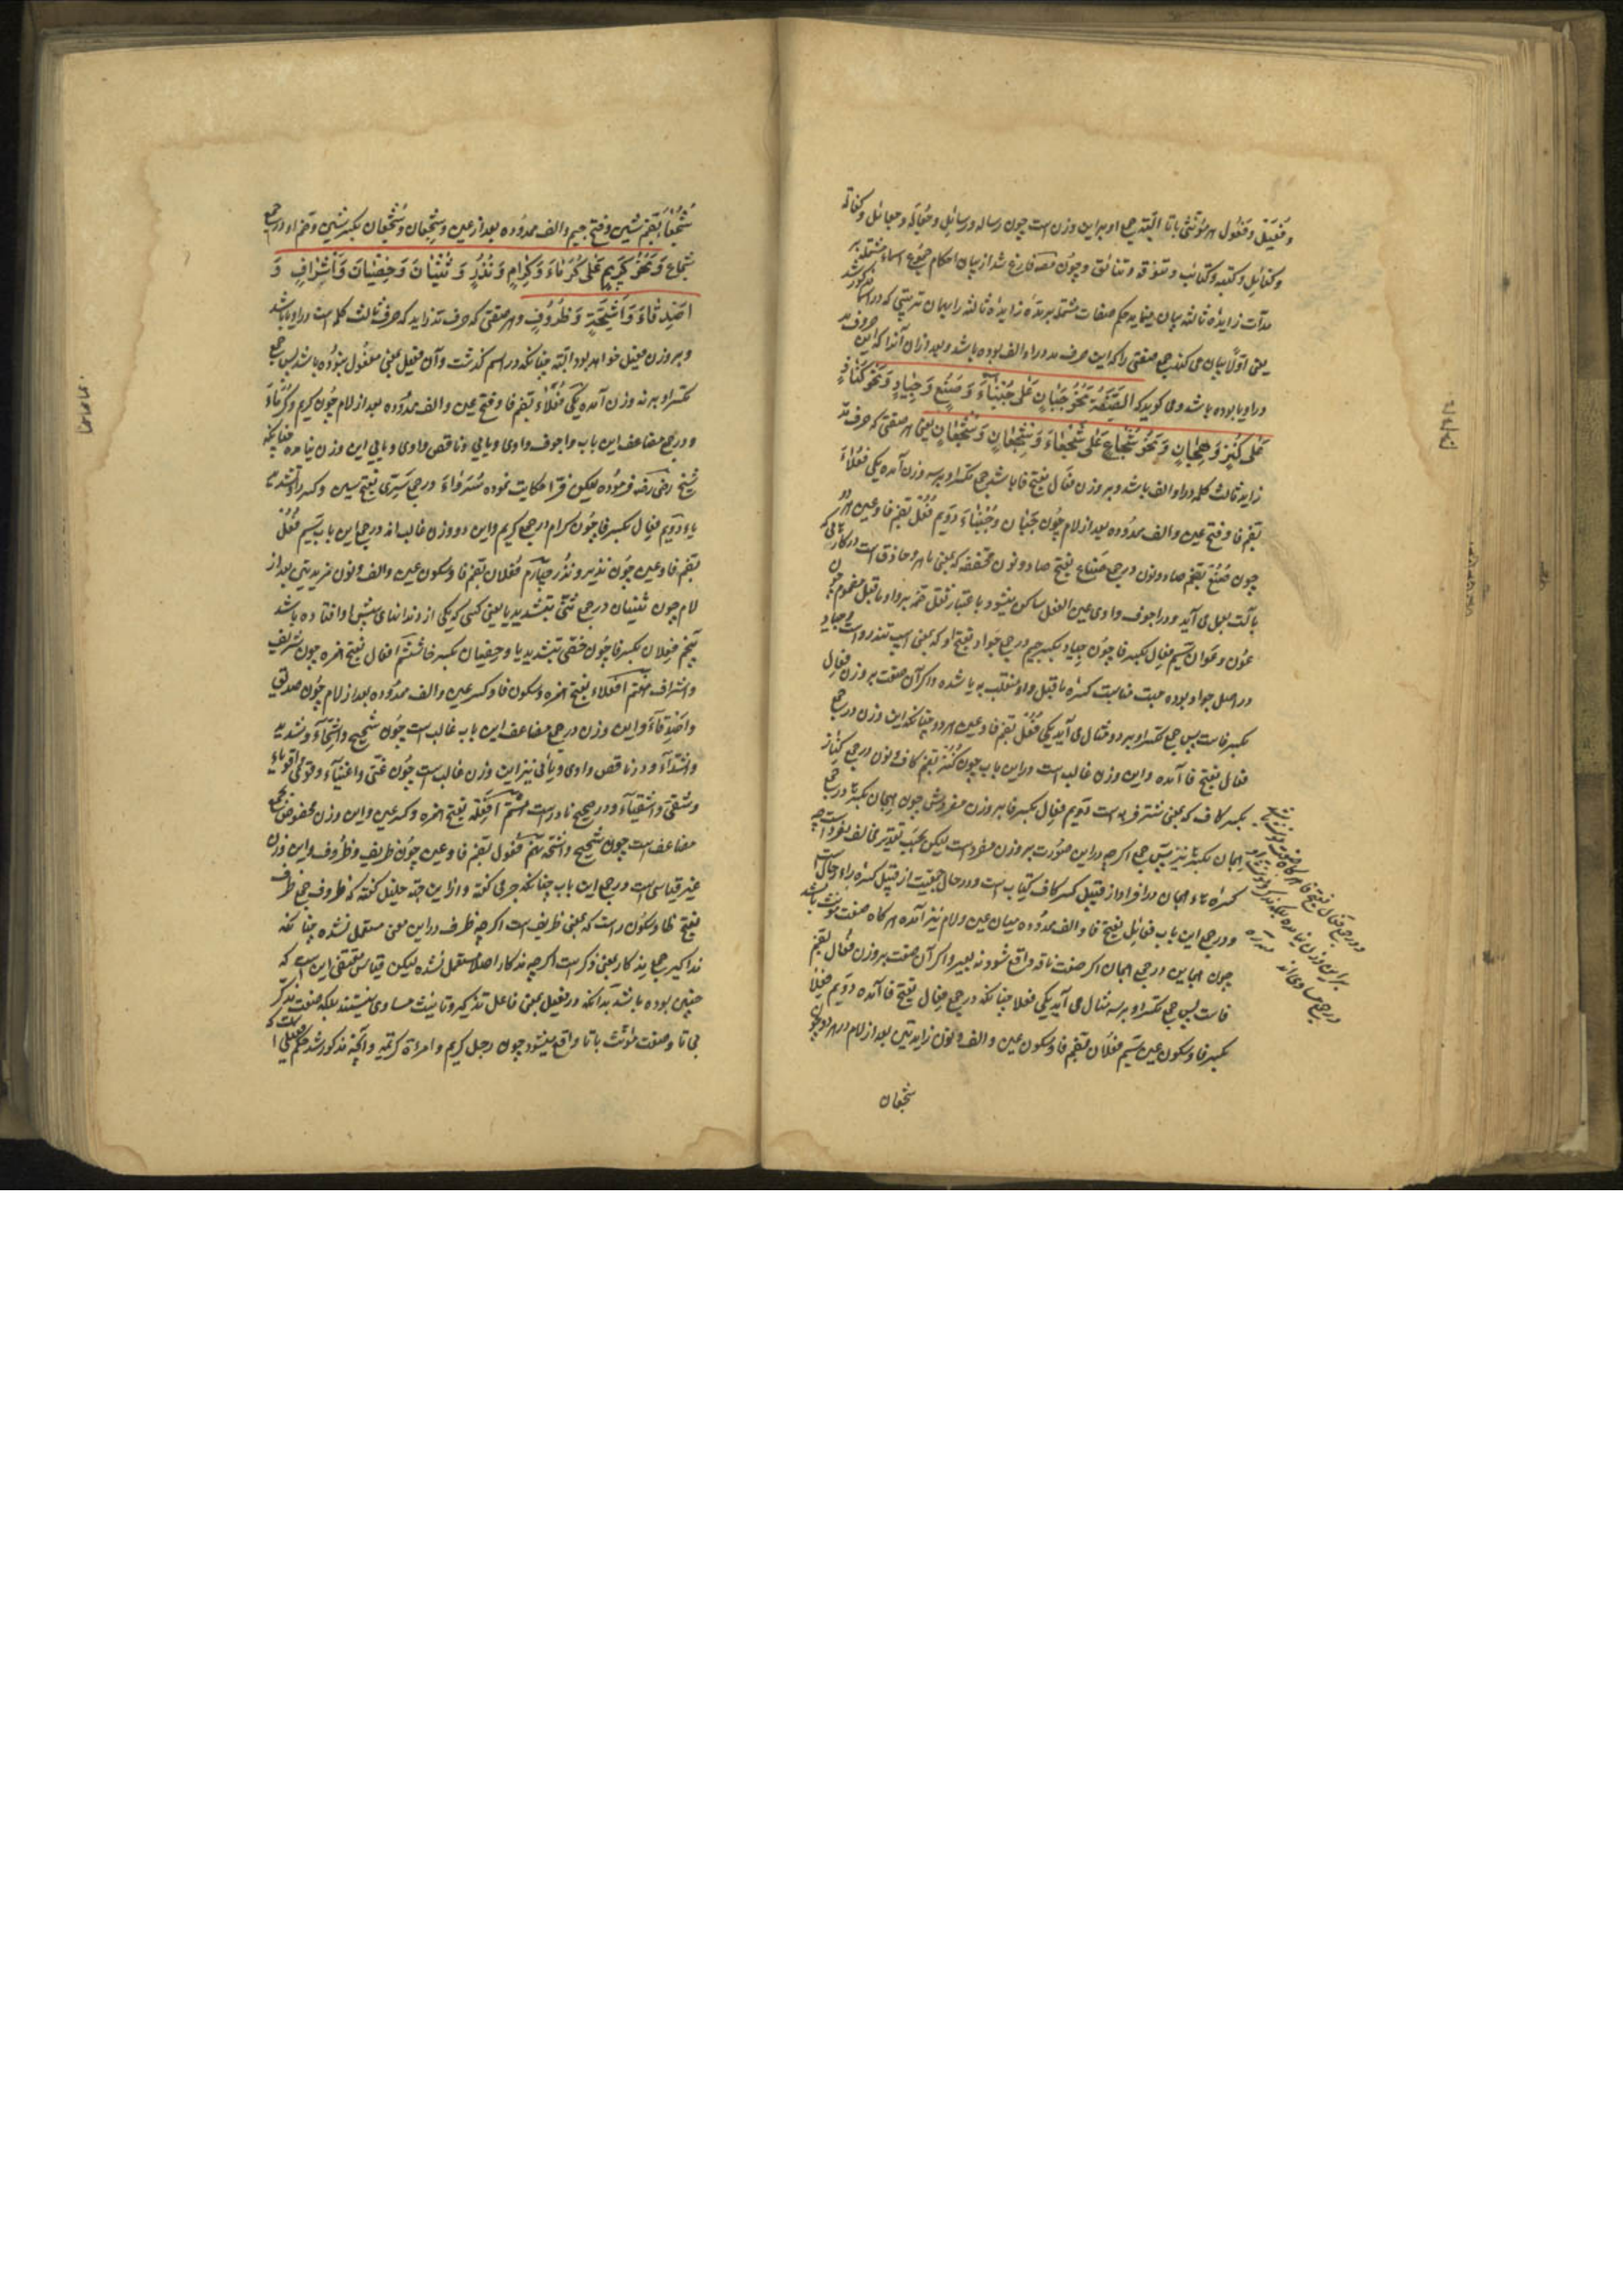 و فعیل و فعول هر مؤنثی باتا البته جمع او برین وزن است چون رساله و رسائل و جعاله و جعائل و کفاله
و کفائل و کتیبه و کتائب و تنوفه و تنائف و چون مصنف فارغ شد از بیان احکام جموع اسماء مشتمله بر
مدات زایده ثالثه بیان مینماید حکم صفات مشتمله بر مده زایده ثالثه را بهمان ترتیبی که در اسما مذکور شد
یعنی اولا بیان می کند جمع صفتی را که این حرف مد در او الف بوده باشد و بعد از ان آنرا که این حروف مد
در او یا بوده باشد و می گوید که الصفة نحو جبان علی جبناء و صنع و جیاد و نحو کناز
علی کنز و هجان و نحو شجاع علی شجعاء و شجعان و شجعان یعنی هر صفتی که حرف مد
زاید ثالث کلمه در او الف باشد و بر وزن فعال بفتح فا باشد جمع تکسیر او بر سه وزن آمده یکی فعلاء
بضم فا و فتح عین و الف ممدوده بعد از لام چون جبان و جبناء دویم فعل بضم فا و عین هر دو
چون صنع بضم صاد و نون در جمع صناع بفتح صاد و نون مخففه که بمعنی ماهر و حاذق است در کاری که
بآلت بعمل می آید و در اجوف واوی عین الفعل ساکن میشود باعتبار ثقل ضمه بر واو ماقبل مضموم چون
عون و عوان سیم فعال بکسر فا چون جیاد بکسر جیم در جمع جواد بفتح او که بمعنی اسب تندرو است و جیاد
در اصل جواد بوده جهت مناسبت کسره ماقبل واو منقلب به یا شده و اگر آن صفت بر وزن فعال
بکسر فاست پس جمع تکسیر او بر دو مثال می آید یکی فعل بضم فا و عین هر دو چنانکه این وزن در جمع
فعال بفتح فا آمده و این وزن غالب است در این باب چون کنز بضم کاف و نون در جمع کناز
بکسر کاف که بمعنی شتر فربه است دویم فعال بکسر فا بر وزن مفردش چون هجان بکسر ها در جمع
هجان بکسر ها نیز پس جمع اگرچه در این صورت بر وزن مفرد است لیکن بحسب تقدیر مخالف مفرد است چه
کسره هاء هجان در افراد از قبیل کسر کاف کتاب است و در حال جمعیت از قبیل کسره راء رجال است
و در جمع این باب فعائل بفتح فا و الف ممدوده میان عین و لام نیز آمده هرگاه صفت مؤنث باشد
چون هجاین در جمع هجان اگر صفت ناقه واقع شود نه بعیر و اگر آن صفت بر وزن فعال بضم
فاست پس جمع تکسیر او بر سه مثال می آید یکی فعلا چنانکه در جمع فعال بفتح فا آمده دویم فعلان
بکسر فا و سکون عین سیم فعلان بضم فا و سکون عین و الف و نون زایدتین بعد از لام در هر دو چون
شجعان
شجعاء بضم شین و فتح جیم و الف ممدوده بعد از عین و شجعان و شجعان بکسر شین و ضم او در جمع
شجاع و نحو کریم علی کرماء و کرام و نذر و ثنیان و خصیان و اشراف و
اصدقاء و اشحة و ظروف و هر صفتی که حرف مد زاید که حرف ثالث کلمه است در او یا باشد
و بر وزن فعیل خواهد بود البته چنانکه در اسم گذشت و آن فعیل بمعنی مفعول نبوده باشد پس جمع
تکسیر او بر نه وزن آمده یکی فعلاء بضم فا و فتح عین و الف ممدوده بعد از لام چون کریم و کرماء
و در جمع مضاعف این باب و اجوف واوی و یایی و ناقص واوی و یایی این وزن نیامده چنانکه
شیخ رضی رضه فرموده لیکن فرا حکایت نموده سرواء در جمع سری بفتح سین و کسر را و تشدید
یاء دویم فعال بکسر فا چون کرام در جمع کریم و این دو وزن غالب اند در جمع این باب سیم فعل
بضم فا و عین چون نذیر و نذر چهارم فعلان بضم فا و سکون عین و الف و نون مزیدتین بعد از
لام چون ثنیان در جمع ثنی بتشدید یا یعنی کسی که یکی از دندانهای پیش او افتاده باشد
پنجم فعلان بکسر فا چون خصی بتشدید یا و خصیان بکسر خا ششم افعال بفتح همزه چون شریف
و اشراف هفتم افعلاء بفتح همزه و سکون فا و کسر عین و الف ممدوده بعد از لام چون صدیق
و اصدقاء و این وزن در جمع مضاعف این باب غالب است چون شحیح و اشحاء و شدید
و اشداء و در ناقص واوی و یائی نیز این وزن غالب است چون غنی و اغنیاء و قوی و اقویاء
و شقی و اشقیاء و در صحیح نادر است هشتم افعلة بفتح همزه و کسر عین و این وزن مخصوص بجمع
مضاعف است چون شحیح و اشحة نهم فعول بضم فا و عین چون ظریف و ظروف و این وزن
غیر قیاسی است در جمع این باب چنانکه جرمی گفته و از این جهة خلیل گفته که ظروف جمع ظرف
بفتح ظا و سکون راست که بمعنی ظریف است اگرچه ظرف در این معنی مستعمل نشده چنانکه
مذاکیر جمع مذکار بمعنی ذکر است اگرچه مذکار اصلا مستعمل نشده لیکن قیاس مقتضی این است که
چنین بوده باشد بدانکه در فعیل بمعنی فاعل تذکیر و تانیث مساوی نیستند بلکه صفت مذکر
بی تا و صفت مؤنث باتا واقع میشود چون رجل کریم و امراة کریمة و آنچه مذکور شد حکم فعیلی است که